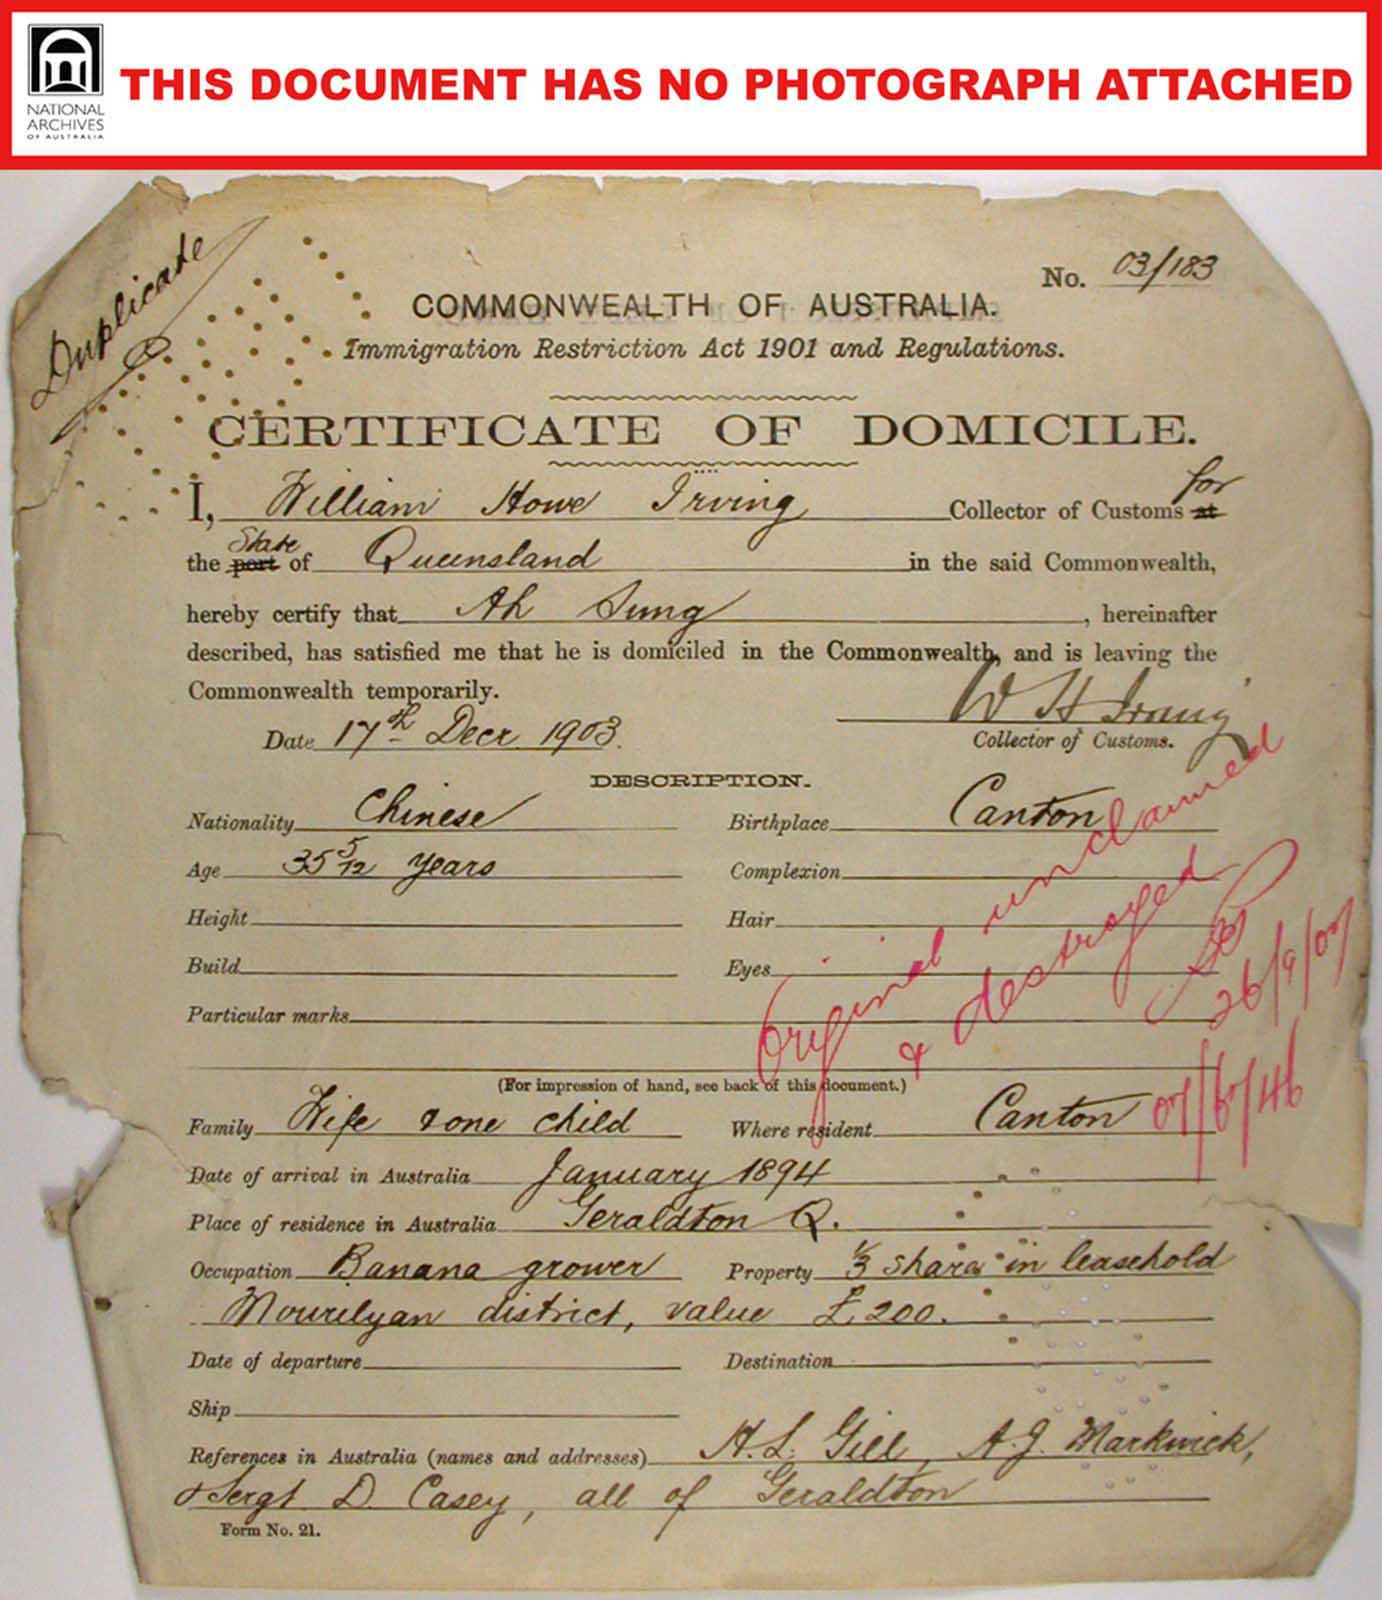 NATIONAL
ARCHIVES
OF AUSTRALIA
THIS DOCUMENT HAS NO PHOTOGRAPH ATTACHED
Duplicate
No. 03/183
COMMONWEALTH OF AUSTRALIA.
Immigration Restriction Act 1901 and Regulations.
CERTIFICATE OF DOMICILE.
I, William Howe Irving Collector of Customs at for
the port State of Queensland in the said Commonwealth,
hereby certify that Ah Sung, hereinafter
described, has satisfied me that he is domiciled in the Commonwealth, and is leaving the
Commonwealth temporarily.
W H Irving
Date 17th Decr 1903.
Collector of Customs.
DESCRIPTION.
Nationality Chinese Birthplace Canton
Age 35 5/12 years Complexion
Height Hair
Build Eyes
Particular marks
Original unclaimed
& destroyed
26/9/07
07/6/46
(For impression of hand, see back of this document.)
Family Wife & one child Where resident Canton
Date of arrival in Australia January 1894
Place of residence in Australia Geraldton Q.
Occupation Banana grower Property 1/3 share in leasehold
Mourilyan district, value £200.
Date of departure Destination
Ship
References in Australia (names and addresses) H. L. Gill, A. J. Markwick,
& Sergt D. Casey, all of Geraldton
Form No. 21.